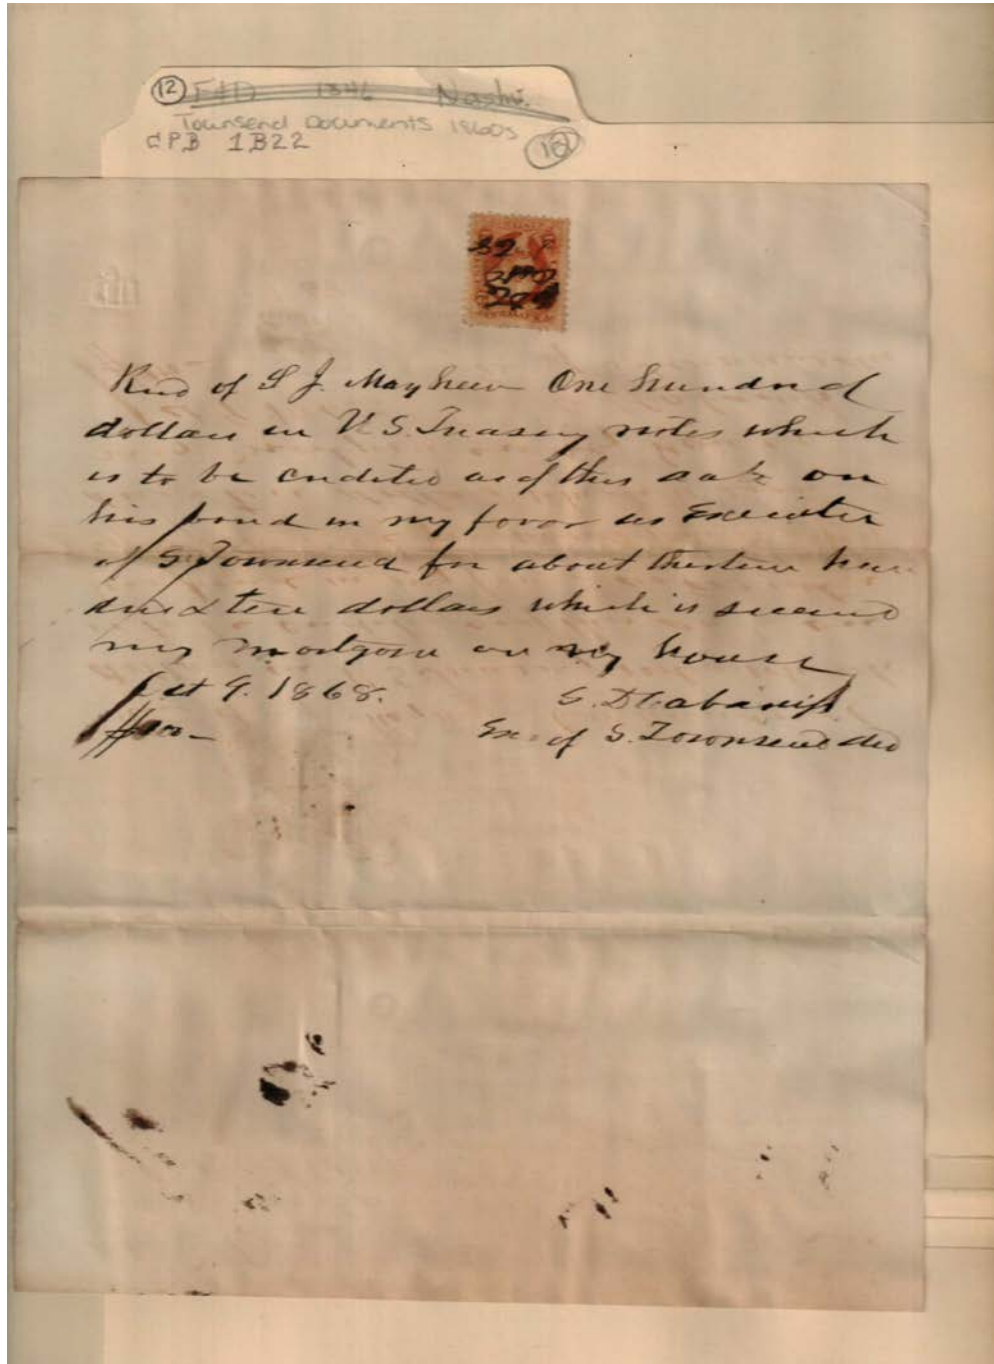 12 F&D 1846 Nashv.
Townsend Documents 1860s
CPB 1B22 12
Recd of S J. Mayhew One hundred
dollars in U.S. Treasury notes which
is to be credited as of this date on
his bond in my favor as Executor
of S Townsend for about thirteen hun
dred & ten dollars which is secured
my mortgage on my house
Oct 9. 1868. S. D Cabaniss
$100- Ex. of S. Townsend decd